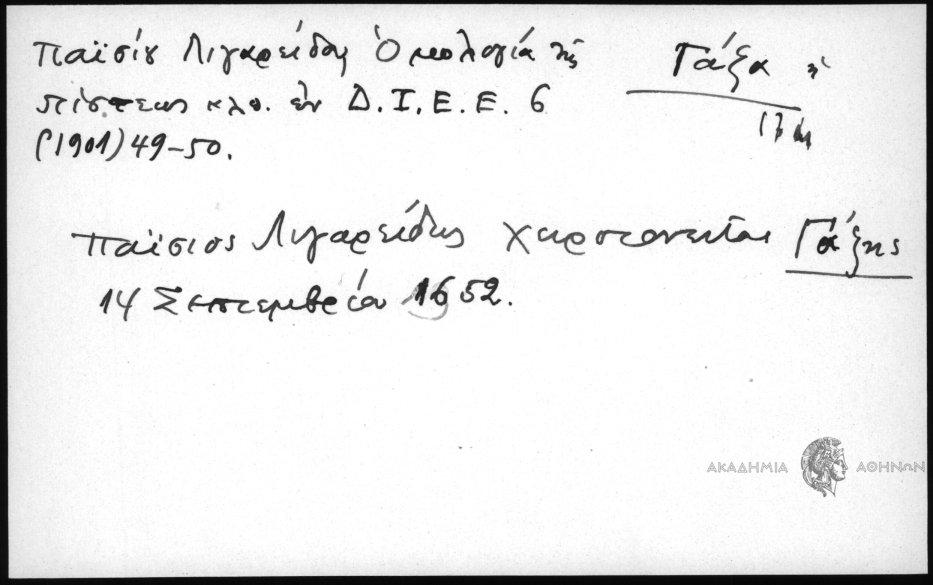 Παϊσίου Λιγαρείδου Ὁμολογία τῆς
πίστεως κλπ. ἐν Δ.Ι.Ε.Ε. 6
(1901) 49-50.
Γάζα ἡ
17 αι
Παΐσιος Λιγαρείδης χειροτονεῖται Γάζης
14 Σεπτεμβρίου 1652.
ΑΚΑΔΗΜΙΑ ΑΘΗΝΩΝ